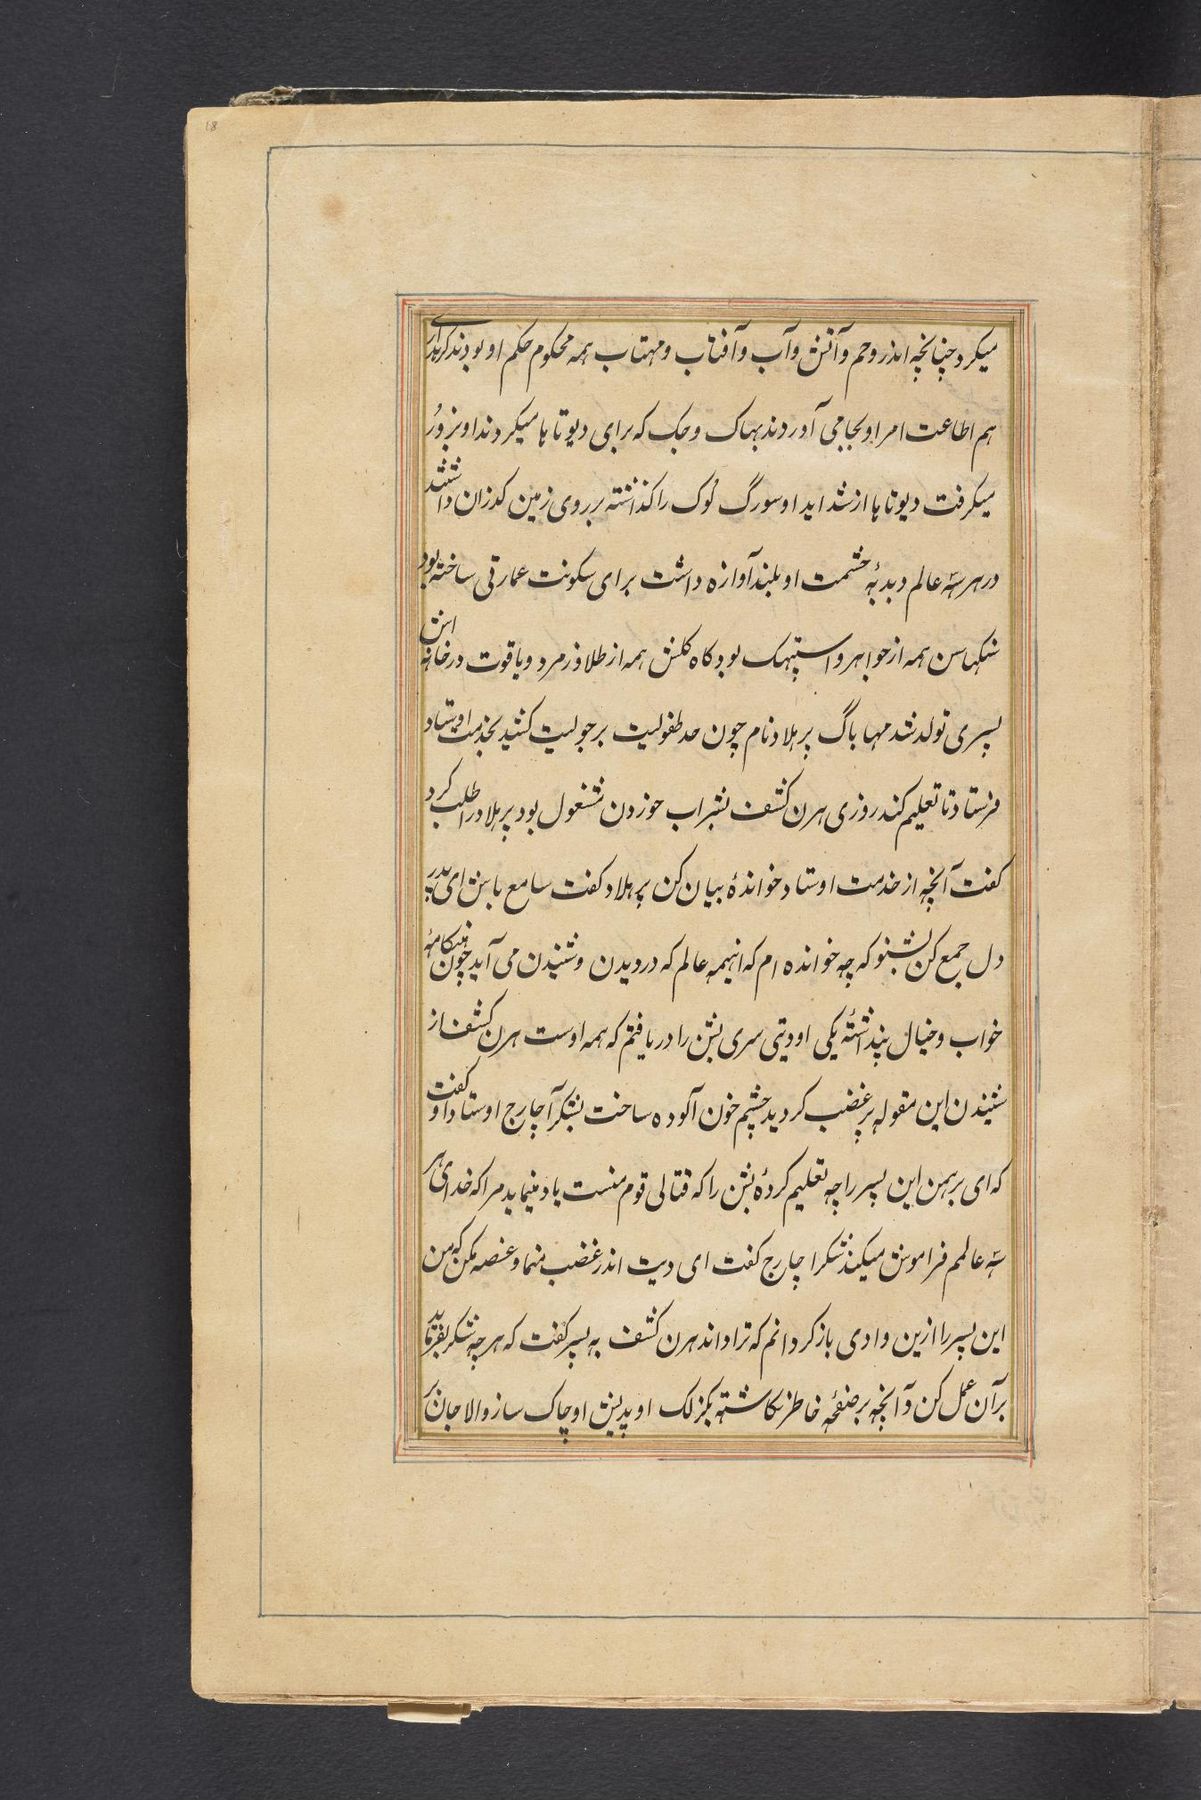 میکرد چنانچه اندر و جم و آتش و آب و آفتاب و مهتاب همه محکوم حکم او بودند
هم اطاعت امر او بجا می آوردند بهاک و جک که برای دیوتا ها میکردند او بزور
میکرفت دیوتا ها از شداید او سورگ لوک را کذاشته بر روی زمین کذران داشتند
در هر سه عالم دبدبهٔ حشمت او بلند آوازه داشت برای سکونت عمارتی ساخته بود
سنکهاسن همه از جواهر و استپهک بود کاه کلش همه از طلا و زمرد و یاقوت در خانه اش
پسری تولد شد مهاباگ پرهلاد نام چون حد طفولیت برجولیت کشید بخدمت اوستاد
فرستاد تا تعلیم کند روزی هرن کشف بشراب خوردن مشغول بود پرهلاد را طلب کرد
کفت آنچه از خدمت اوستاد خواندهٔ بیان کن پرهلاد کفت سامع باش ای پدر
دل جمع کن بشنو که چه خوانده ام که اینهمه عالم که در دیدن و شنیدن می آید چون هنکامهٔ
خواب و خیال پنداشته یکی اودیتی سری بشن را دریافتم که همه اوست هرن کشف از
شنیدن این مقوله پر غضب کردید چشم خون آلوده ساخت بشکر آچارج اوستاد او کفت
که ای برهمن این پسر را چه تعلیم کردهٔ بشن را که قتالی قوم منست یاد مینماید مرا که خدای هر
سه عالمم فراموش میکند شکرا چارج کفت ای دیت اندر غضب منما و غصه مکن که من
این پسر را ازین وادی باز کردانم که ترا داند هرن کشف به پسر کفت که هر چه شکر بفرماید
بر آن عمل کن و آنچه بر صفحهٔ خاطر نکاشته بکزلک اوپدیش او چاک ساز والا جان
68